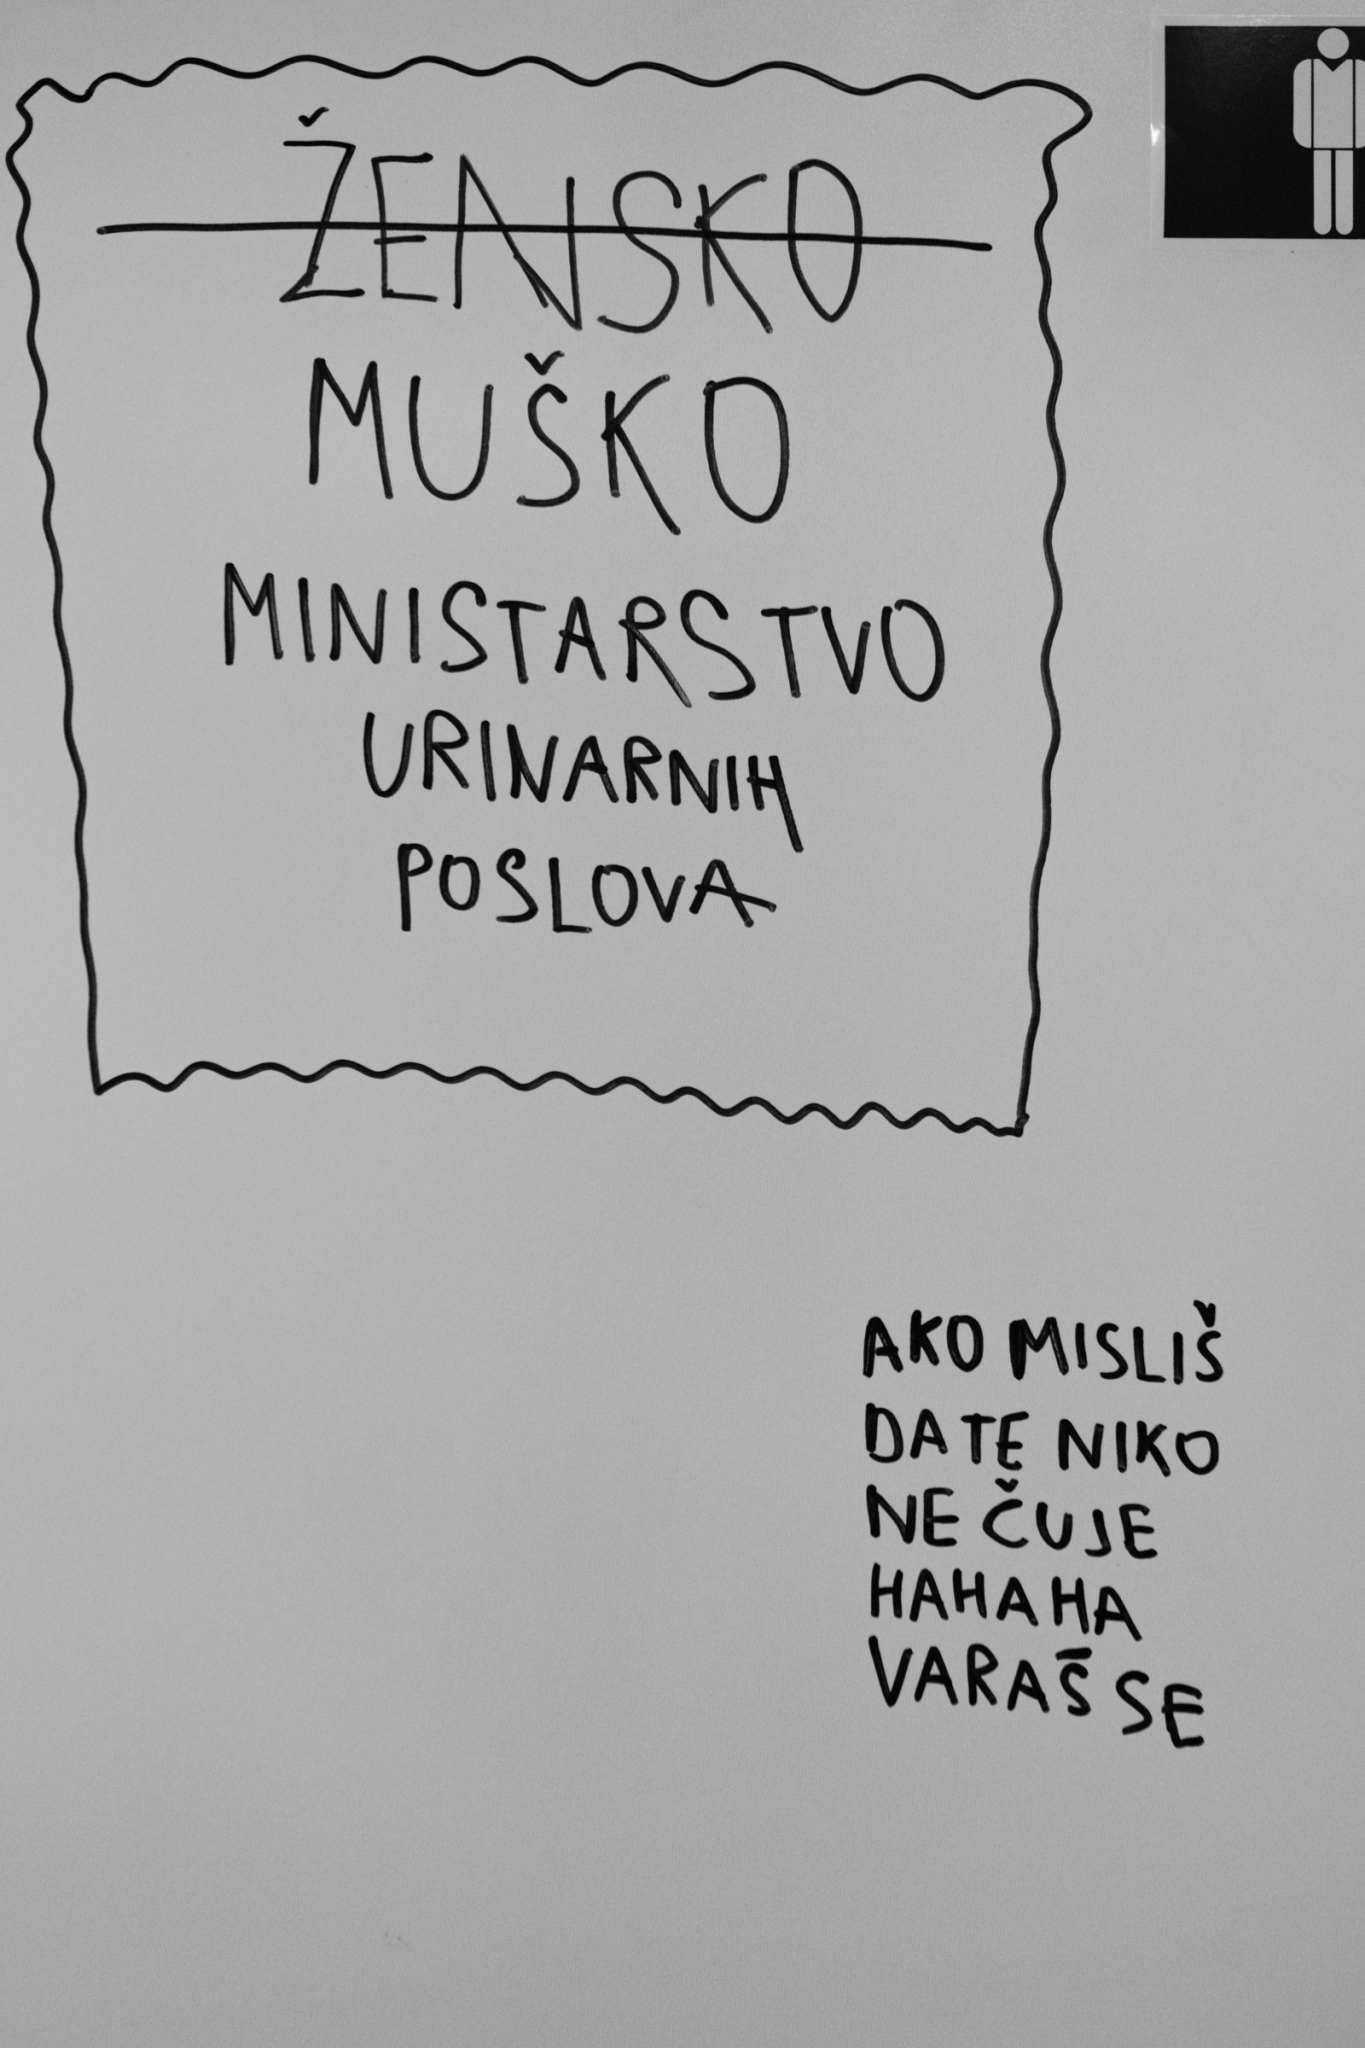 ŽENSKO
MUŠKO
MINISTARSTVO
URINARNIH
POSLOVA
AKO MISLIŠ
DA TE NIKO
NE ČUJE
HAHAHA
VARAŠ SE